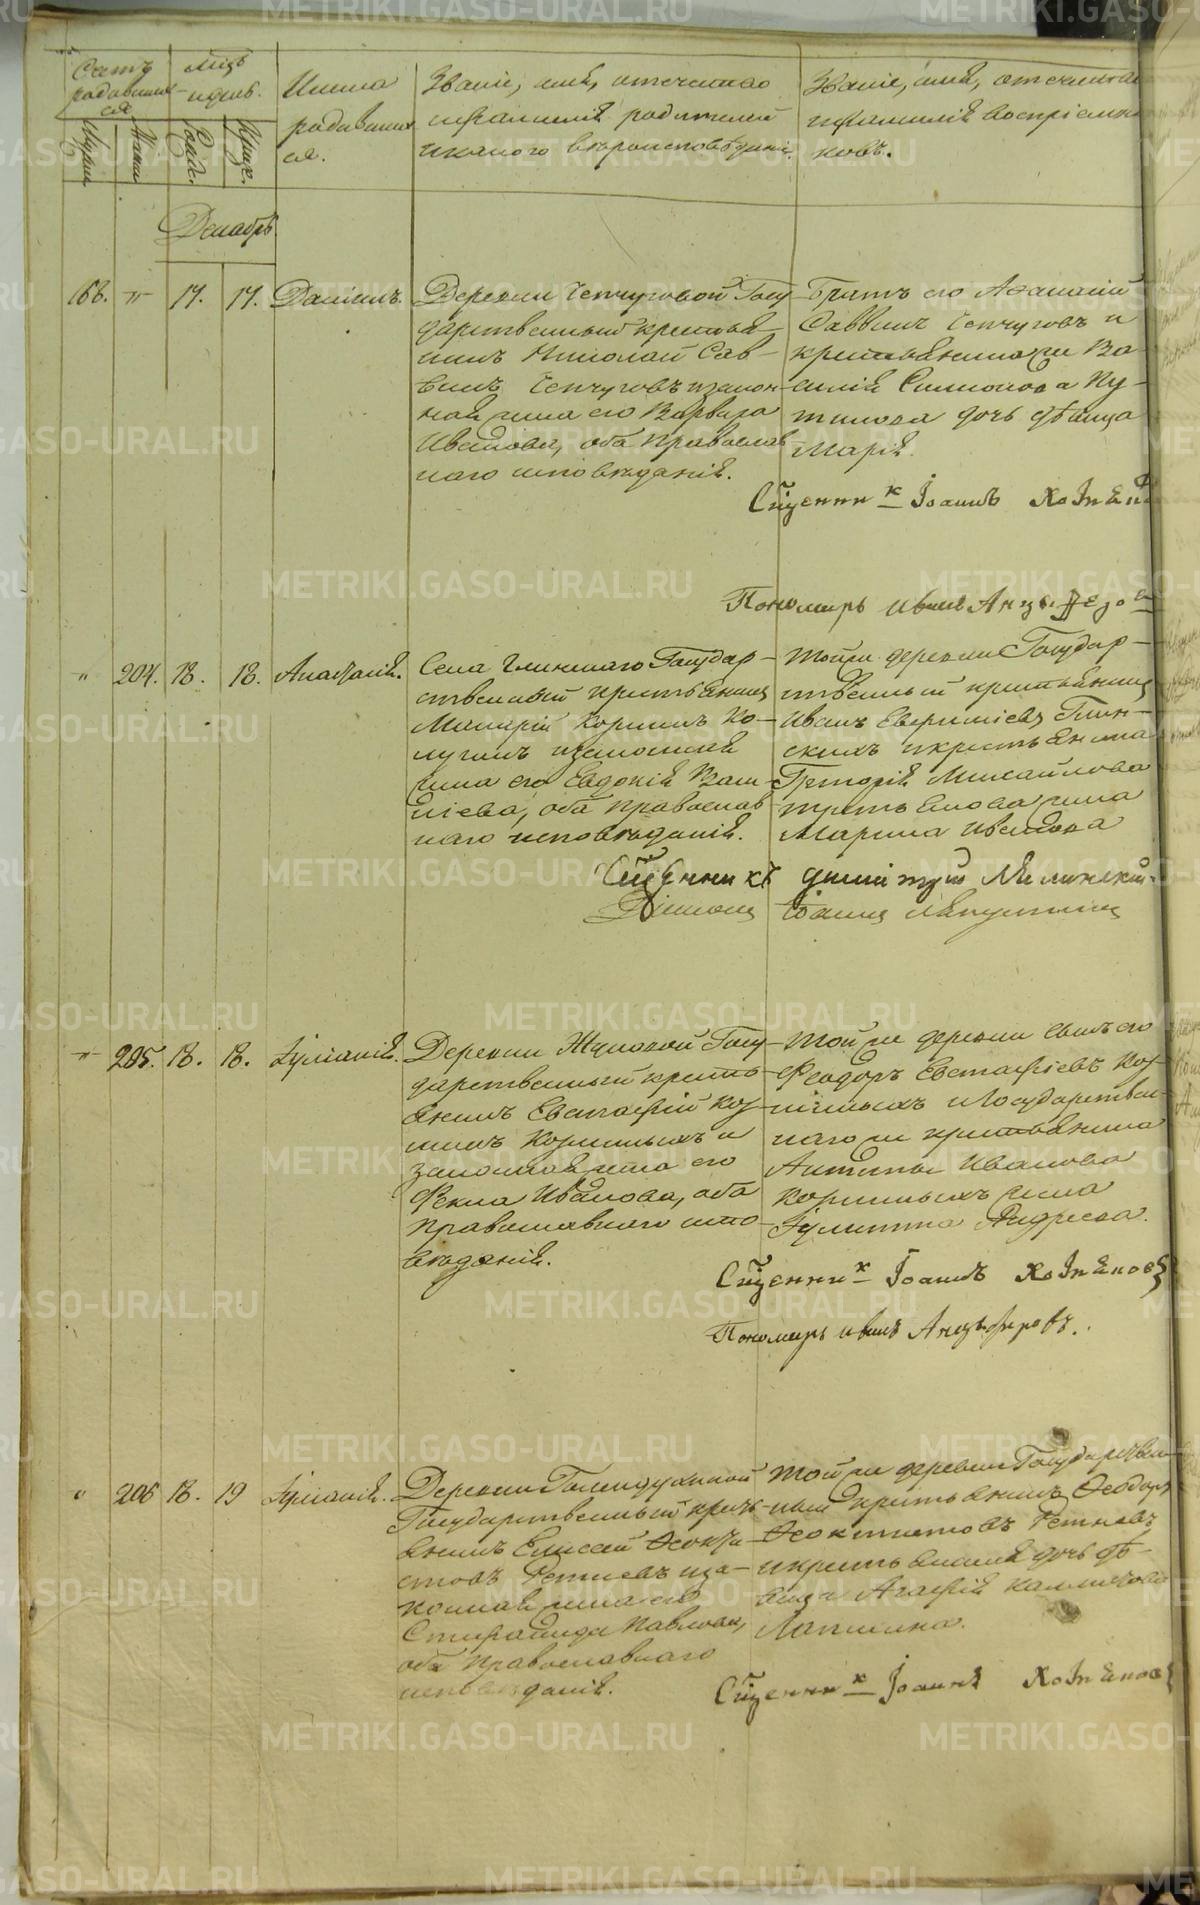 Счетъ родившихся
Мѣсяцъ и день.
Имена родившихся.
Званіе, имя, отечество
и фамилія родителей
и какого вѣроисповѣданія.
Званіе, имя, отечество
и фамилія воспріемни-
ковъ.
Декабрь.
168. " 17. 17. Даніилъ.
Деревни Чепчуговой Госу-
дарственный крестья-
нинъ Николай Сав-
винъ Чепчуговъ и закон-
ная жена его Варвара
Иванова, оба православ-
наго исповѣданія.
Братъ его Афанасій
Саввинъ Чепчуговъ и
крестьянина Ва-
силія Симонова Пу-
тилова дочь дѣвица
Марія.
Сщенник Іоаннъ Хотяновъ
Пономарь Иванъ
" 204. 18. 18. Анастасія.
Села Глинскаго Государ-
ственный крестьянинъ
Макарій Корнилъ Ко-
лугинъ и законная
жена его Евдокія Васи-
ліева, оба православ-
наго исповѣданія.
Той же деревни Государ-
ственный крестьянинъ
Иванъ Евфиміевъ Глин-
скихъ и крестьянина
Григорія Михайлова
Третьякова жена
Марина Иванова
Сщенникъ Димитрій
Діаконъ Іоаннъ
" 205. 18. 18. Іуліанія.
Деревни Жуковой Госу-
дарственный кресть-
янинъ Евстафій Коз-
минъ Корнильихъ и
законная жена его
Фекла Иванова, оба
православнаго испо-
вѣданія.
Той же деревни сынъ его
Феодоръ Евстафіевъ Кор-
нильихъ и Государствен-
наго же крестьянина
Антипы Иванова
Корнильихъ жена
Іулитта Андреева.
Сщенник Іоаннъ Хотяновъ
Пономарь Иванъ Анцыферовъ.
" 206 18. 19 Іуліанія.
Деревни Голендухиной
Государственный кресть-
янинъ Елисей Ѳеокти-
стовъ Ретневъ и за-
конная жена его
Стирагида Павлова,
оба православнаго
исповѣданія.
Той же деревни Государствен-
ный крестьянинъ Ѳеодоръ
Ѳеоктистовъ Ретневъ
и крестьянская дочь дѣ-
вица Агафія Каллистова
Лапшина.
Сщенник Іоаннъ Хотяновъ
METRIKI.GASO-URAL.RU